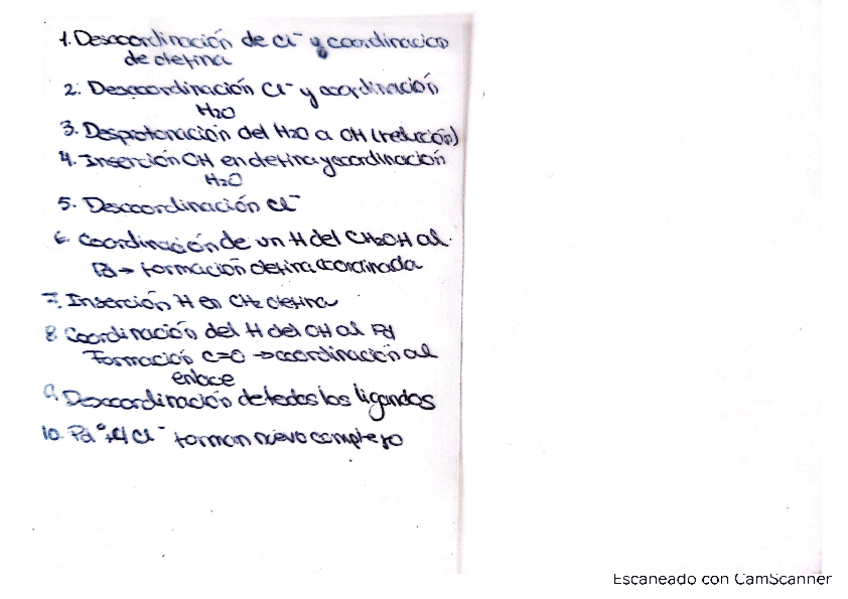 1. Descoordinación de Cl⁻ y coordinación
de olefina
2. Descoordinación Cl⁻ y coordinación
H₂O
3. Desprotonación del H₂O a OH (reducción)
4. Inserción OH en olefina y coordinación
H₂O
5. Descoordinación Cl⁻
6. Coordinación de un H del CH₂OH al
Pd → Formación olefina coordinada
7. Inserción H en CH₂ olefina
8. Coordinación del H del OH al Pd
Formación C=O → coordinación al
enlace
9. Descoordinación de todos los ligandos
10. Pd⁰ + 4 Cl⁻ forman nuevo complejo
Escaneado con CamScanner